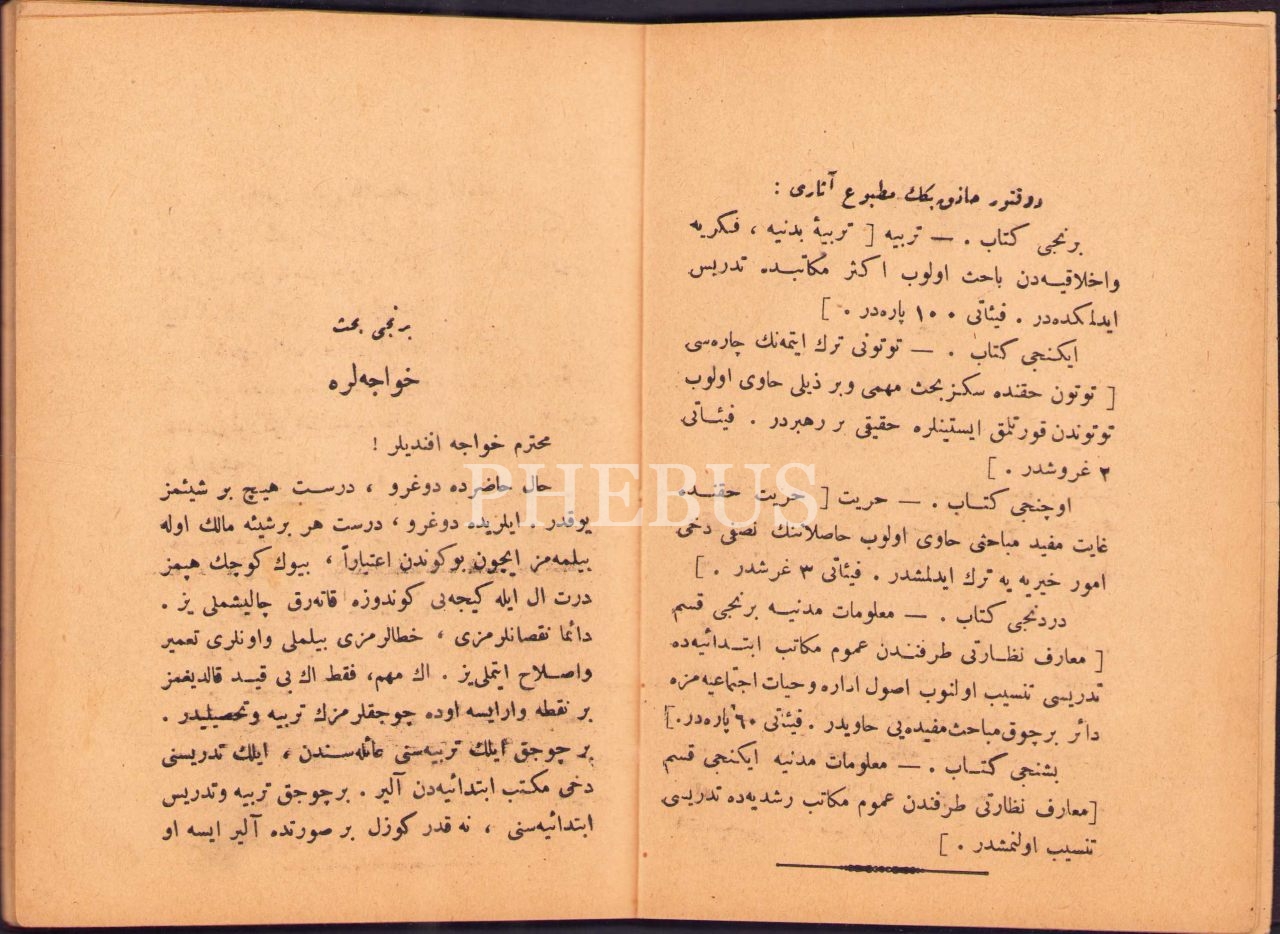 دوقتور حاذق بكك مطبوع آثارى :
برنجى كتاب . — تربيه [ تربيهٔ بدنيه ، فكريه
واخلاقيه‌دن باحث اولوب اكثر مكاتبده تدريس
ايدلمكده‌در . فيئاتى ١٠٠ پاره‌در . ]
ايكنجى كتاب . — توتونى ترك ايتمه‌نك چاره‌سى
[ توتون حقنده سكز بحث مهمى وبر ذيلى حاوى اولوب
توتوندن قورتلمق ايستينلره حقيقى بر رهبردر . فيئاتى
٢ غروشدر . ]
اوچنجى كتاب . — حريت [ حريت حقنده
غايت مفيد مباحثى حاوى اولوب حاصلاتنك نصفى دخى
امور خيريه يه ترك ايدلمشدر . فيئاتى ٣ غرشدر . ]
دردنجى كتاب . — معلومات مدنيه برنجى قسم
[ معارف نظارتى طرفندن عموم مكاتب ابتدائيه‌ده
تدريسى تنسيب اولنوب اصول اداره وحيات اجتماعيه‌مزه
دائر برچوق مباحث مفيده‌يى حاويدر . فيئاتى ٦٠ پاره‌در. ]
بشنجى كتاب . — معلومات مدنيه ايكنجى قسم
[معارف نظارتى طرفندن عموم مكاتب رشديه‌ده تدريسى
تنسيب اولنمشدر . ]
برنجى بحث
خواجه‌لره
محترم خواجه افنديلر !
حال حاضرده دوغرو ، درست هيچ بر شيئمز
يوقدر . ايلريده دوغرو ، درست هر برشيئه مالك اوله
بيلمه‌مز ايچون بوكوندن اعتباراً ، بيوك كوچك هپمز
درت ال ايله كيجه‌يى كوندوزه قاته‌رق چاليشملى يز .
دائما نقصانلرمزى ، خطالرمزى بيلملى واونلرى تعمير
واصلاح ايتملى‌يز . اك مهم، فقط اك بى قيد قالديغمز
بر نقطه وارايسه اوده چوجقلرمزك تربيه وتحصيليدر .
بر چوجق ايلك تربيه‌سنى عائله‌سندن ، ايلك تدريسنى
دخى مكتب ابتدائيه‌دن آلير . برچوجق تربيه وتدريس
ابتدائيه‌سنى ، نه قدر كوزل بر صورتده آلير ايسه او
PHEBUS